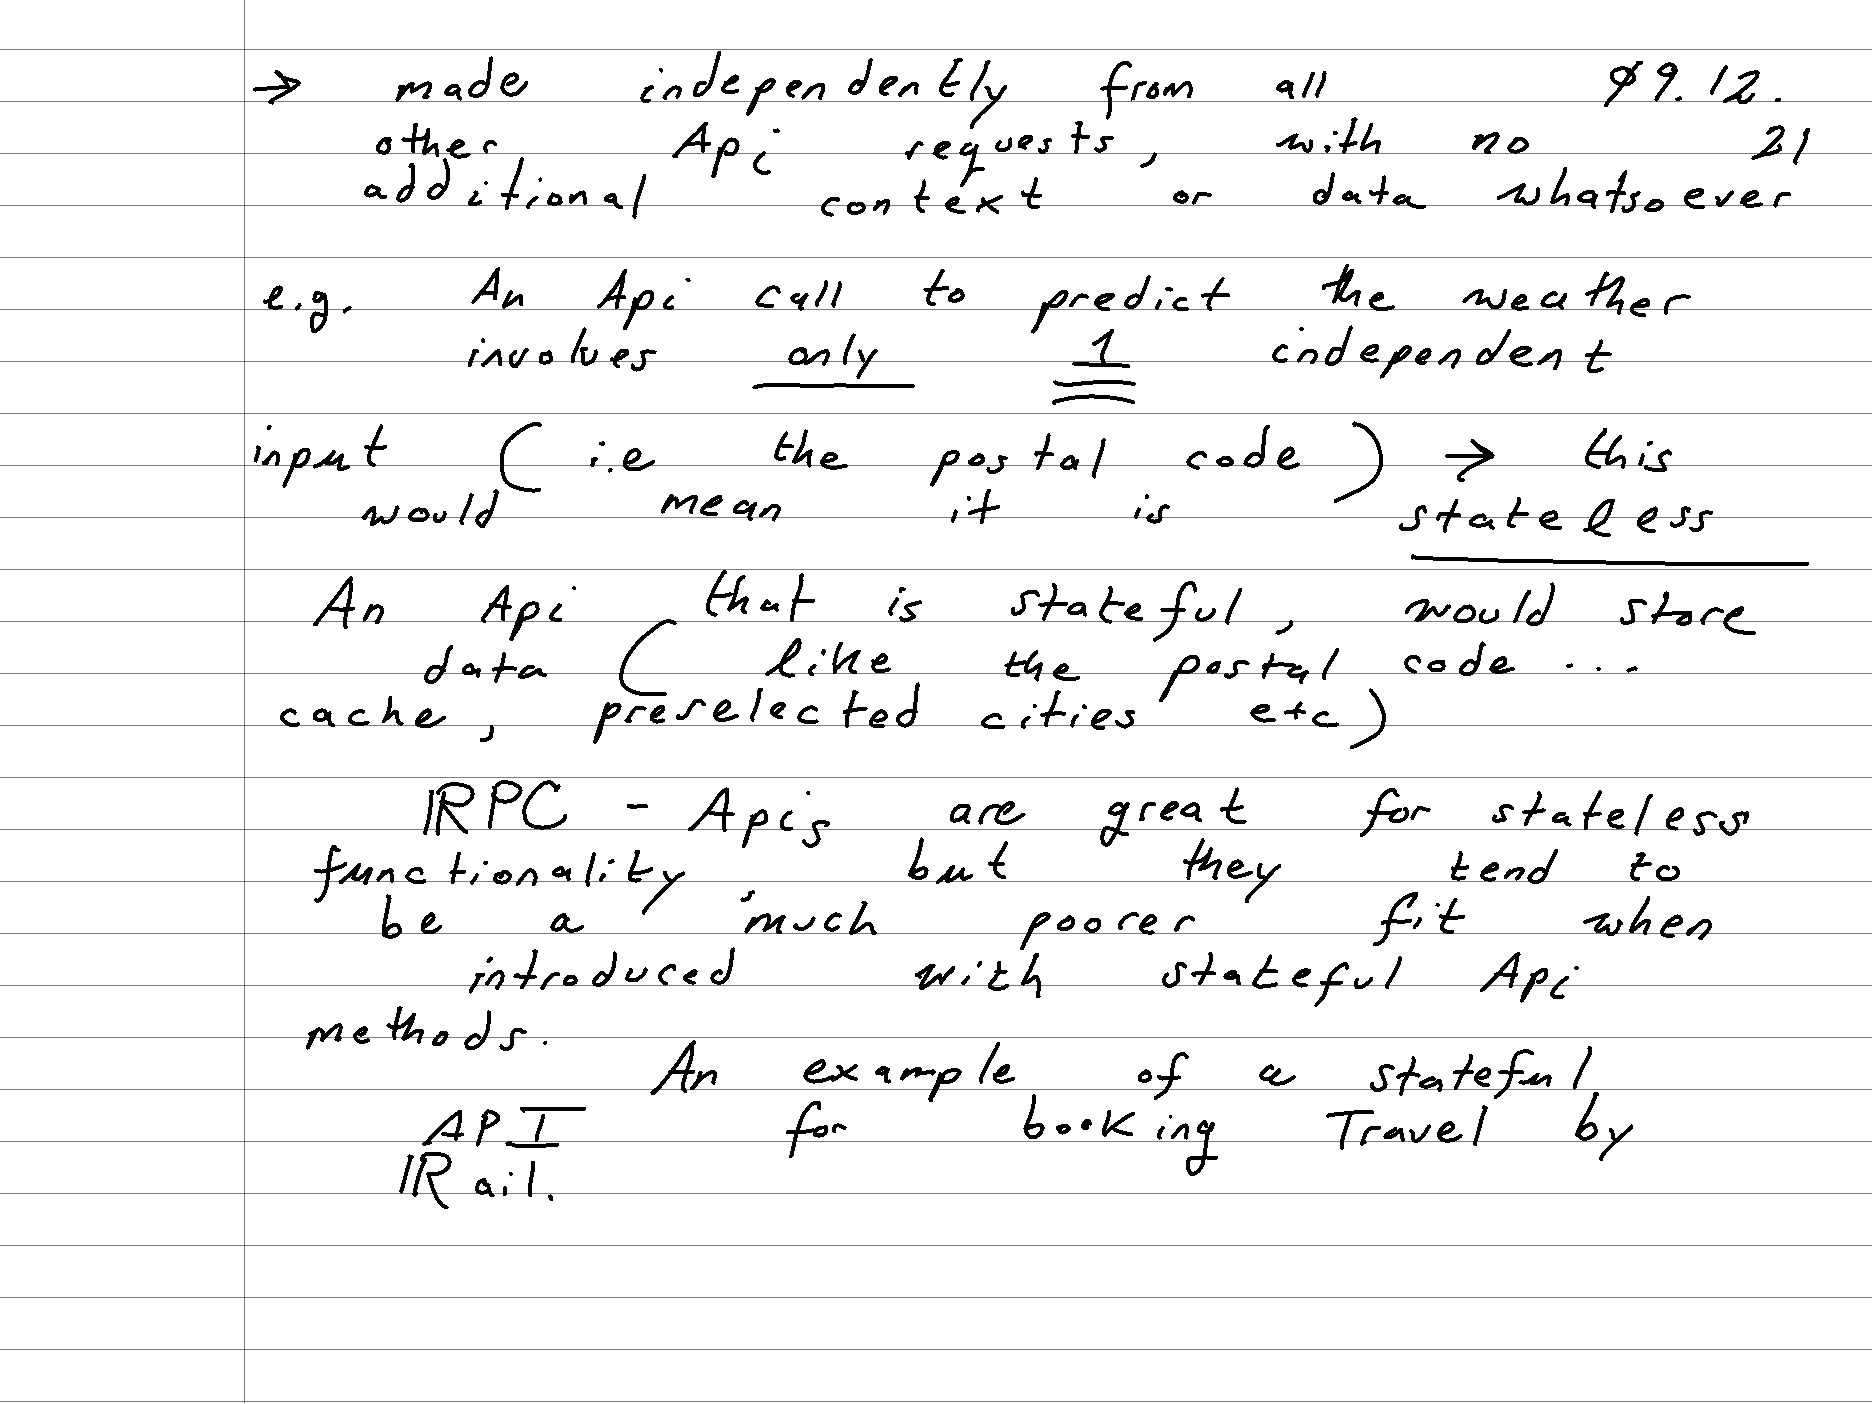 → made independently from all 09.12.
other Api requests, with no 21
additional context or data whatsoever
e.g. An Api call to predict the weather
involves only 1 independent
input (i.e the postal code) → this
would mean it is stateless
An Api that is stateful, would store
data (like the postal code ...
cache, preselected cities etc)
RPC - Apis are great for stateless
functionality, but they tend to
be a much poorer fit when
introduced with stateful Api
methods.
An example of a stateful
API for booking Travel by
Rail.